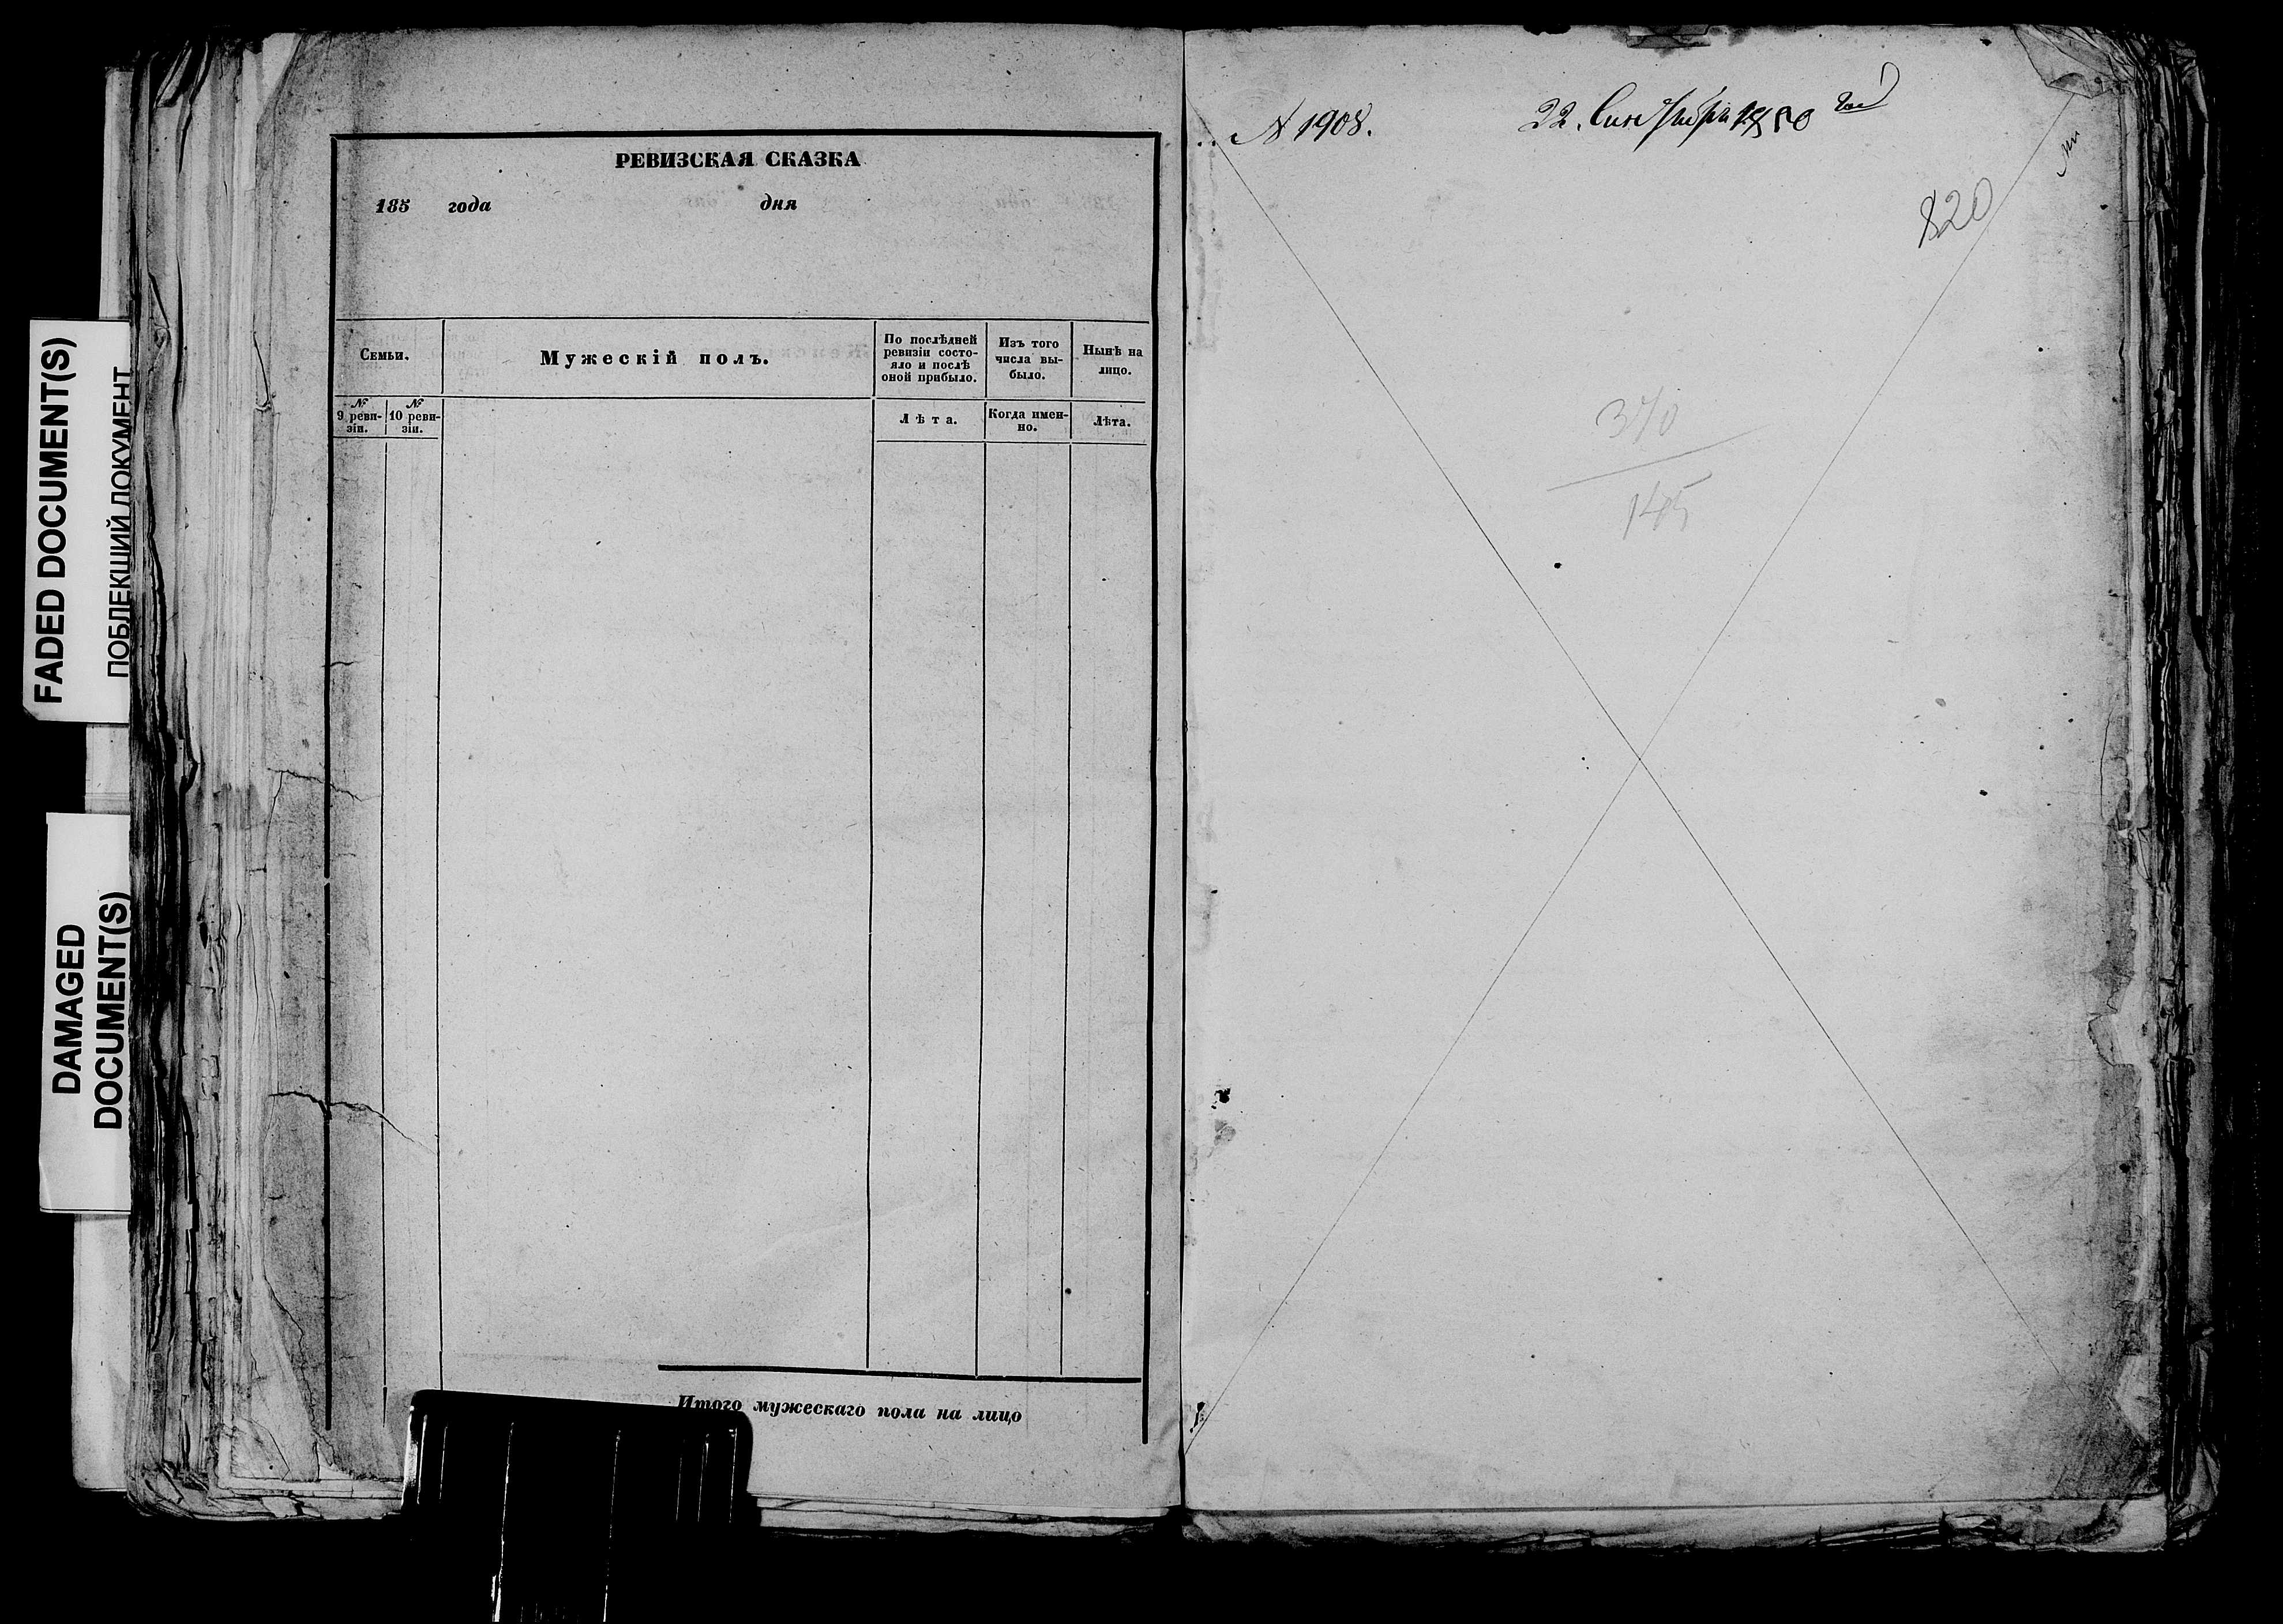 FADED DOCUMENT(S)
ПОБЛЕКШИЙ ДОКУМЕНТ
DAMAGED
DOCUMENT(S)
РЕВИЗСКАЯ СКАЗКА
185 года дня
Семьи.
№ 9 реви-
зіи.
№ 10 реви-
зіи.
Мужескій полъ.
По послѣдней
ревизіи состо-
яло и послѣ
оной прибыло.
Лѣта.
Изъ того
числа вы-
было.
Когда имен-
но.
Нынѣ на
лицо.
Лѣта.
Итого мужескаго пола на лицо
№ 1908.
22. Сентября 1850 год
820
370
145